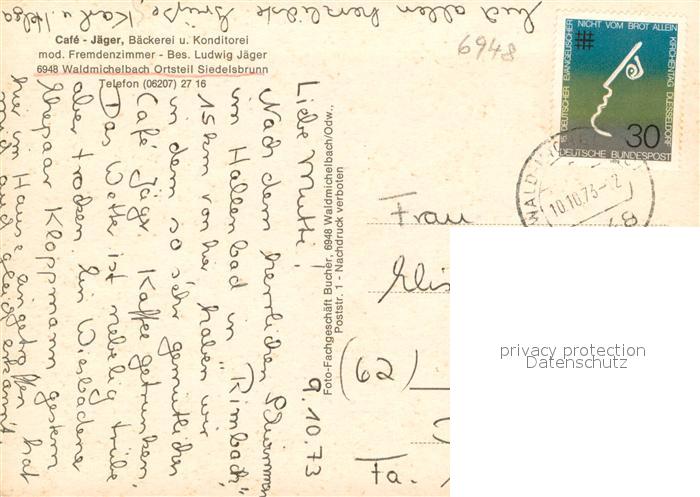 Und allen herzlichste Grüße, Karl u. Helga
Café - Jäger, Bäckerei u. Konditorei
mod. Fremdenzimmer - Bes. Ludwig Jäger
6948 Waldmichelbach Ortsteil Siedelsbrunn
Telefon (06207) 27 16
6948
9.10.73
Liebe Mutti!
Nach dem herrlichen Schwimmen
im Hallenbad in "Rimbach",
15 km von hier haben wir
in dem so sehr gemütlichen
Café Jäger Kaffee getrunken.
Das Wetter ist nebelig trübe
aber trocken. Ein Wiesbadener
Ehepaar Kloppmann gestern
hier im Hause eingetroffen hat
mich gleich erkannt
Foto-Fachgeschäft Bucher, 6948 Waldmichelbach/Odw.,
Poststr. 1 - Nachdruck verboten
15. DEUTSCHER EVANGELISCHER KIRCHENTAG DUESSELDORF
NICHT VOM BROT ALLEIN
30
DEUTSCHE BUNDESPOST
10.10.73-12
Frau
Elis
(62)
Fa.
privacy protection
Datenschutz